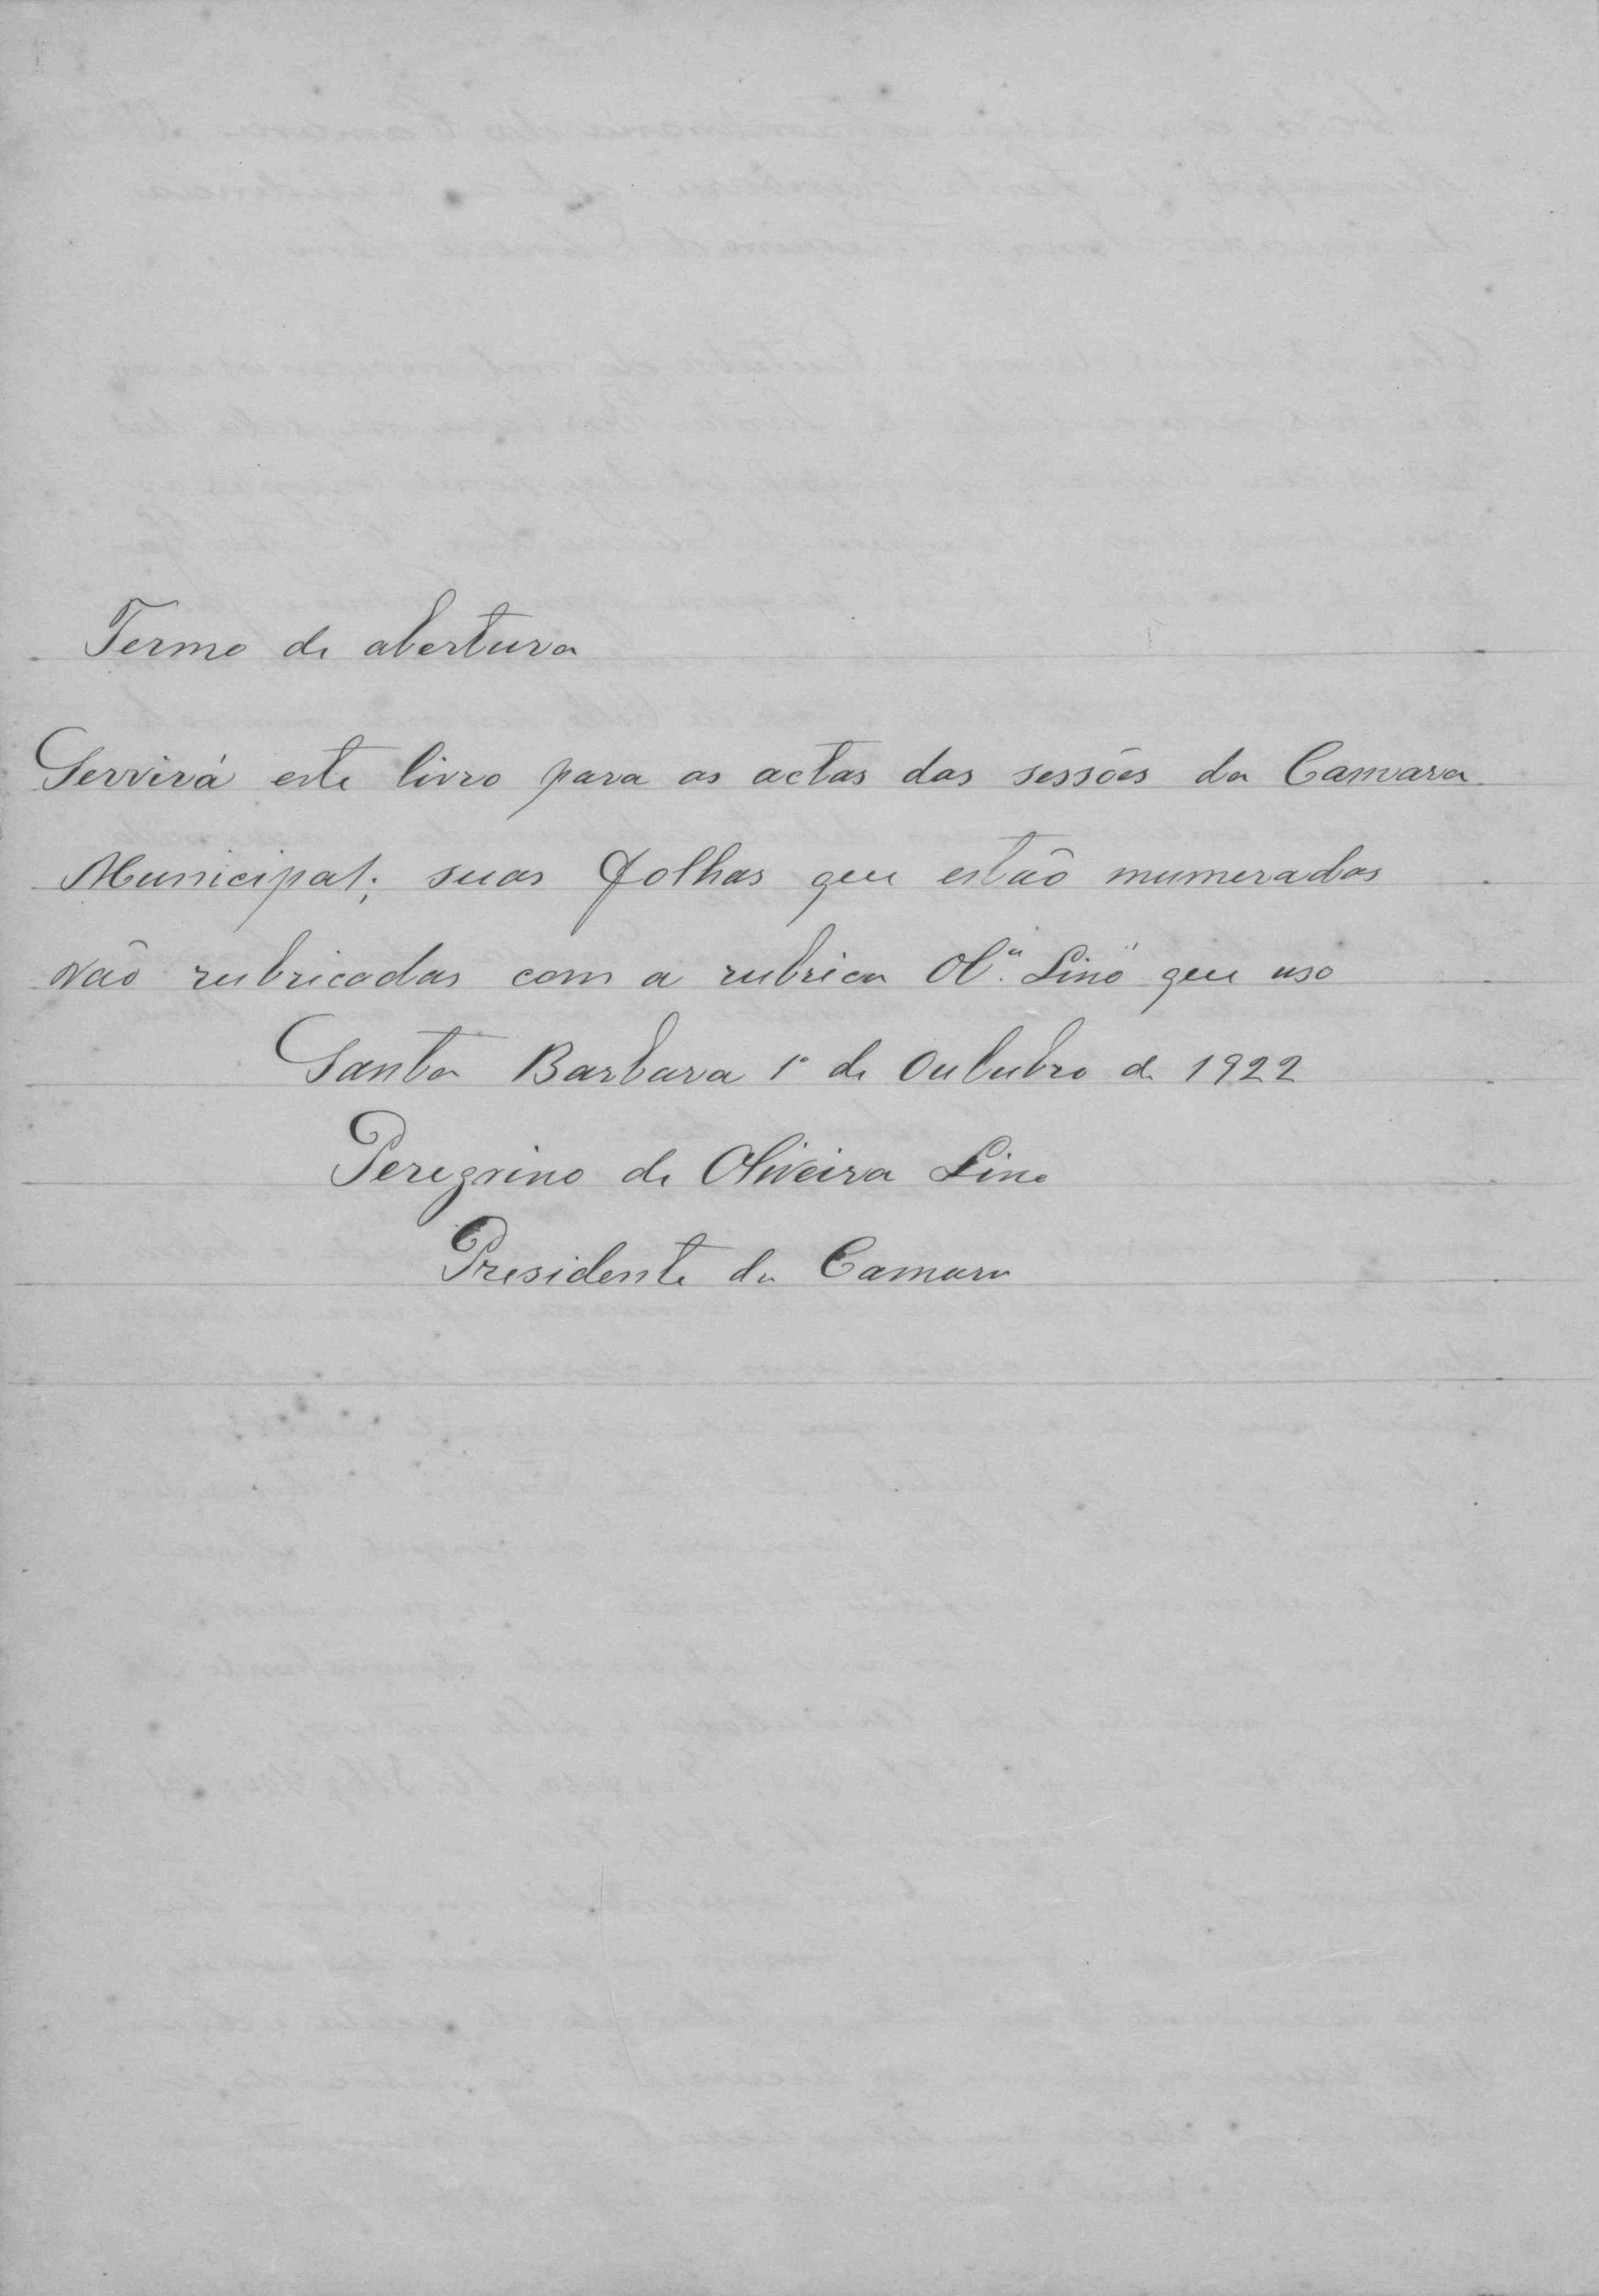 Termo de abertura
Servirá este livro para as actas das sessões da Camara
Municipal; suas folhas que estão numeradas
vão rubricadas com a rubrica Ol.ª Lino" que uso
Santa Barbara 1º de Outubro de 1922
Peregrino de Oliveira Lino
Presidente da Camara